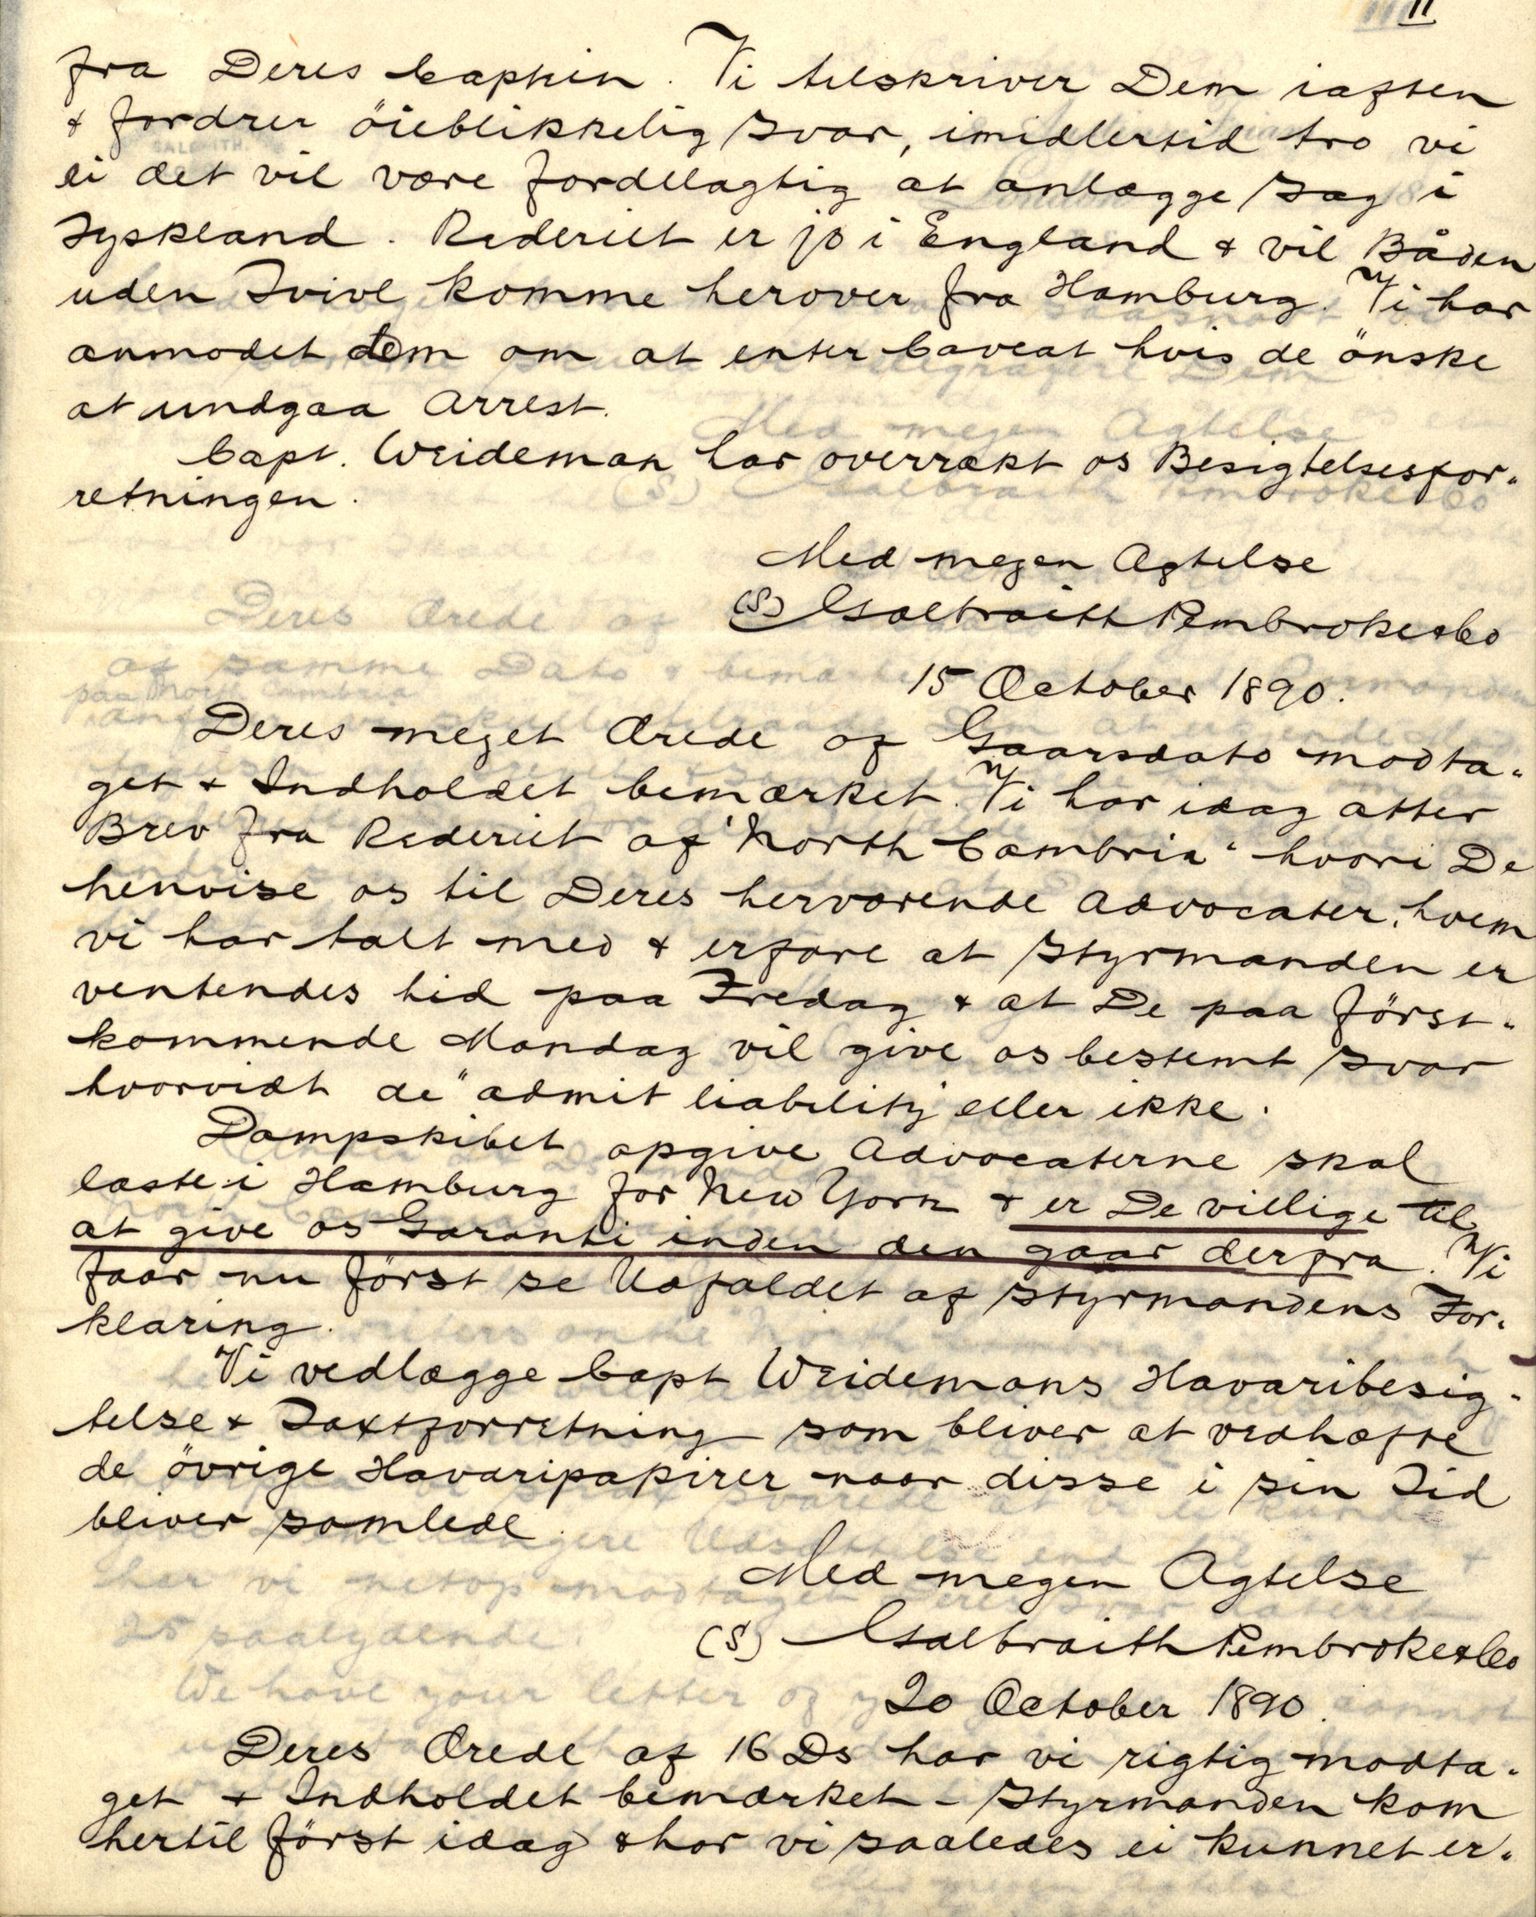 11
fra Deres Captein. Vi tilskriver Dem iaften
& fordrer öieblikkelig Svar, imidlertid tro vi
ei det vil være fordelagtig at anlægge Sag i
Tyskland. Rederiet er jo i England & vil Båden
uden Tvivl komme herover fra Hamburg. Vi har
anmodet dem om at enter Caveat hvis de önske
at undgaa Arrest.
Capt. Weideman har overrakt os Besigtelsesfor-
retningen.
Med megen Agtelse
(S) Galbraith Pembroke & Co
15 October 1890.
Deres meget Ærede af Gaarsdato modta-
get & Indholdet bemærket. Vi har idag atter
Brev fra Rederiet af "North Cambria" hvori De
henvise os til Deres herværende Advocater, hvem
vi har talt med & erfare at Styrmanden er
ventendes hid paa Fredag & at De paa först-
kommende Mandag vil give os bestemt Svar
hvorvidt de "admit liability" eller ikke.
Dampskibet opgive Advocaterne skal
laste i Hamburg for New York & er De villige til
at give os Garanti inden den gaar derfra. Vi
faar nu först se Udfaldet af Styrmandens For-
klaring.
Vi vedlægge Capt Weidemans Havaribesig-
telse & Taxtforretning som bliver at vedhæfte
de övrige Havaripapirer naar disse i sin Tid
bliver samlede.
Med megen Agtelse
(S) Galbraith Pembroke & Co
20 October 1890.
Deres Ærede af 16 Ds har vi rigtig modta-
get & Indholdet bemærket - Styrmanden kom
hertil först idag & har vi saaledes ei kunnet er-